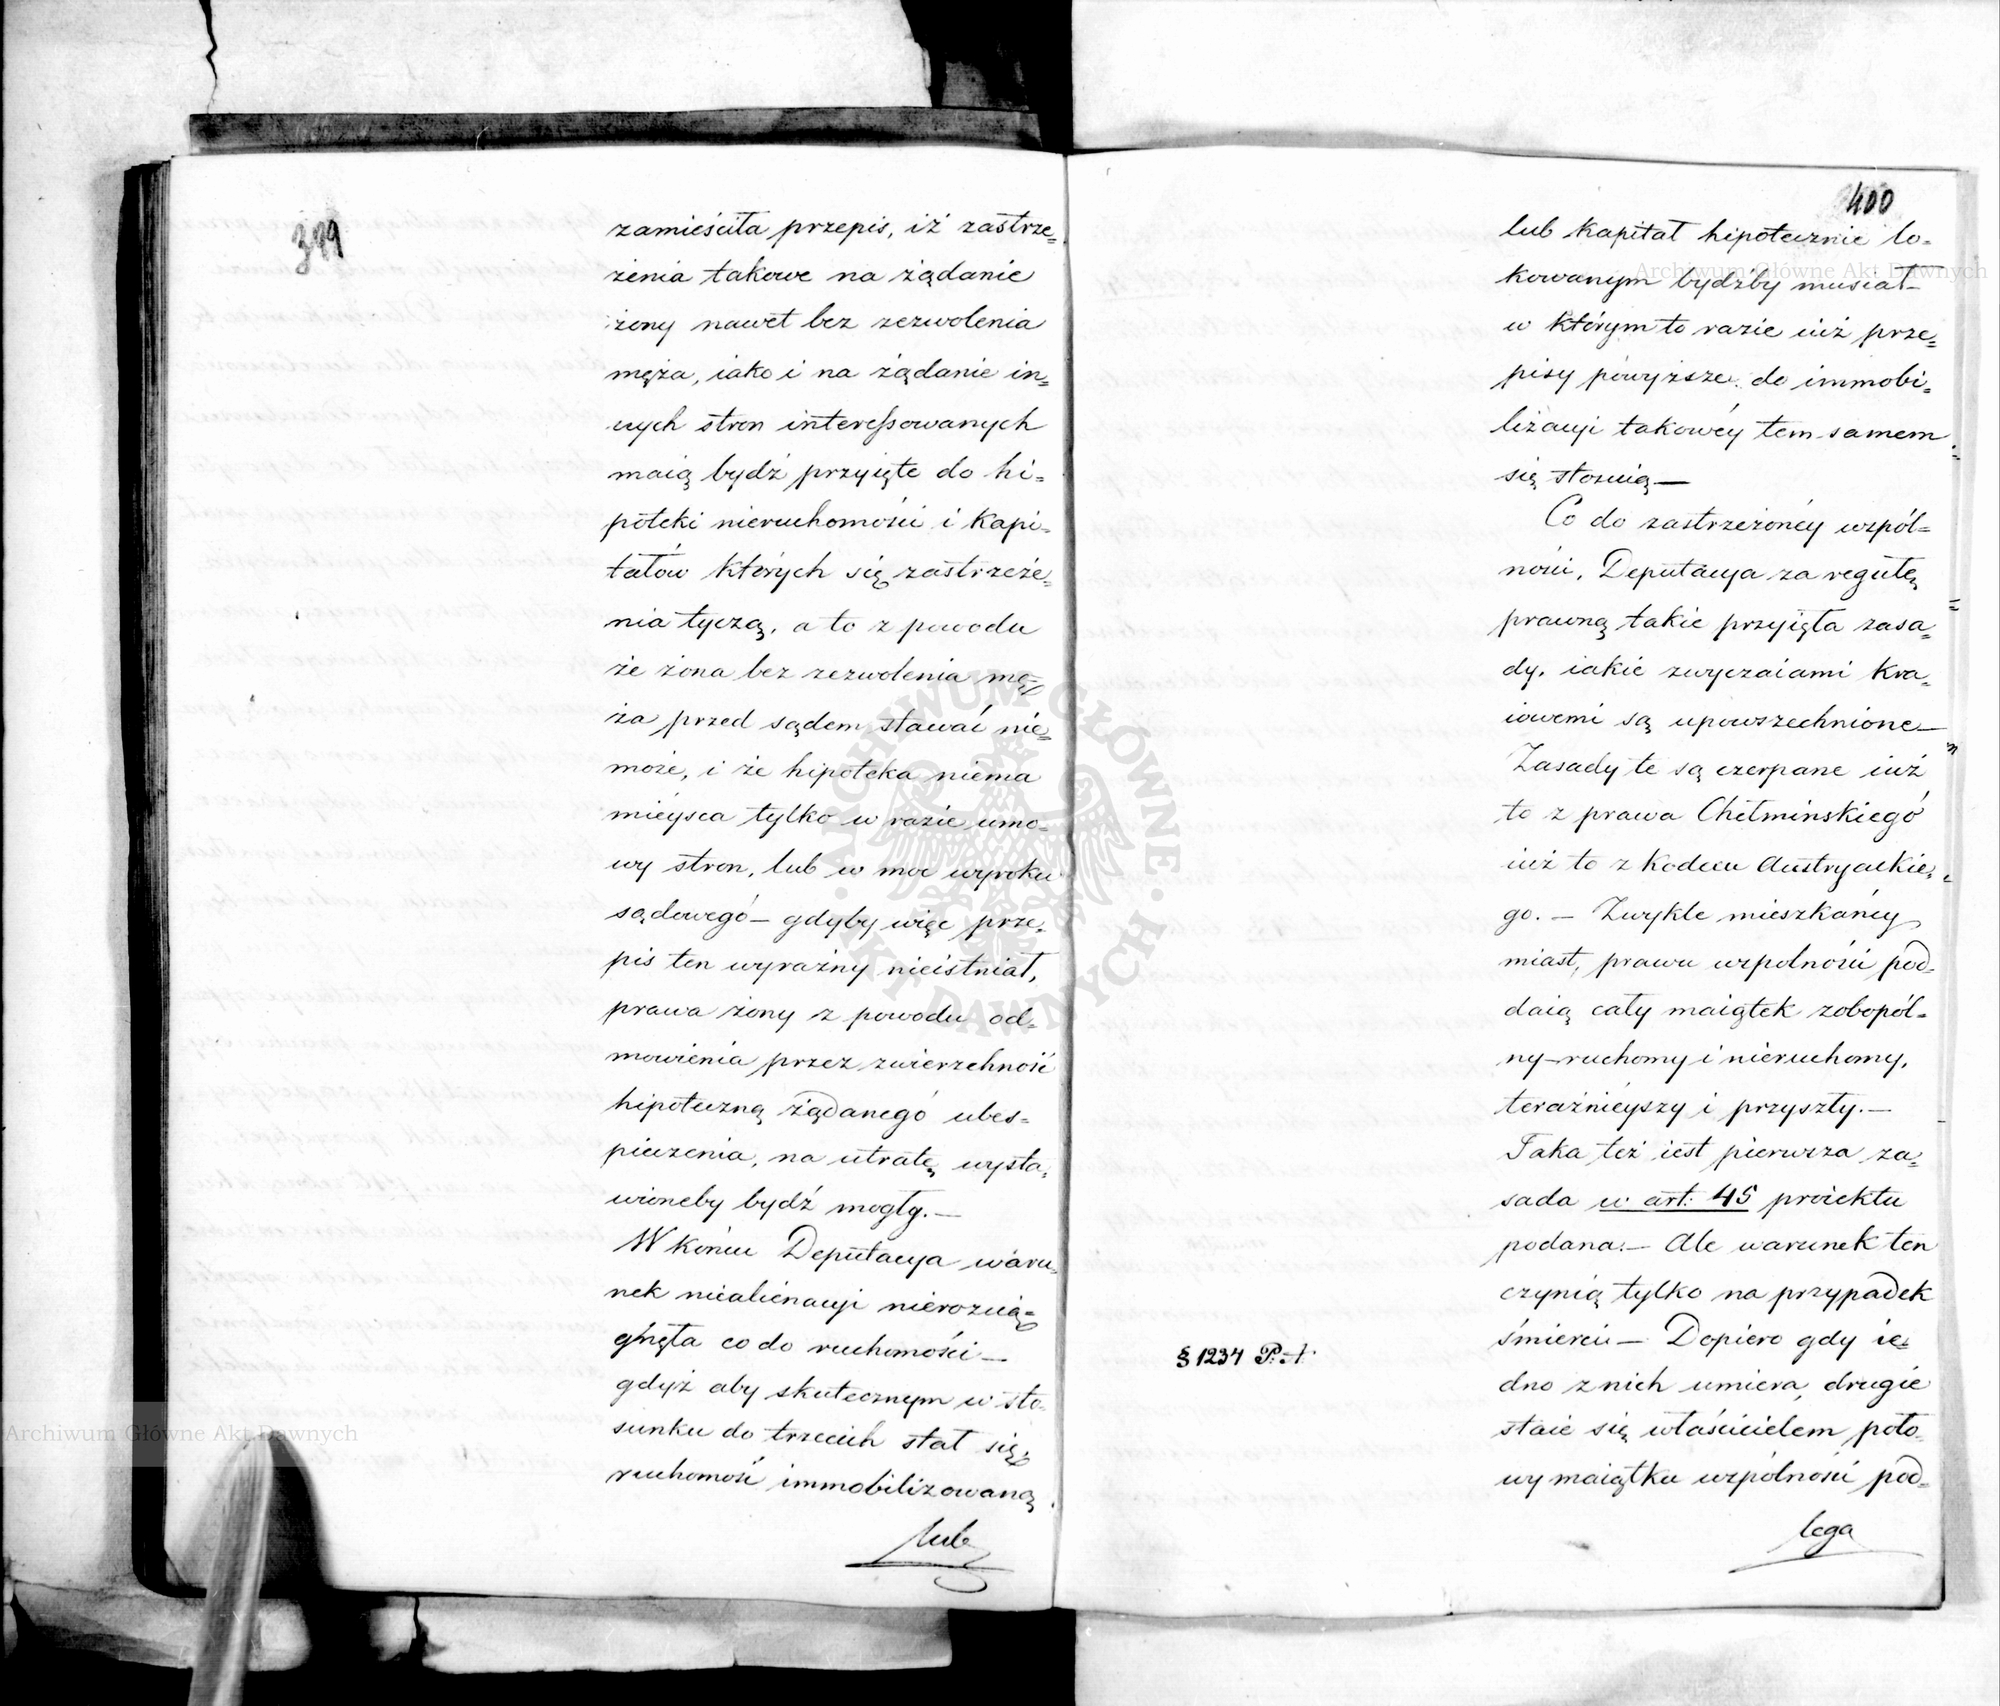 399
zamieściła przepis, iż zastrze=
żenia takowe na żądanie
żony nawet bez zezwolenia
męża, iako i na żądanie in=
nych stron interessowanych
maią bydź przyięte do hi=
poteki nieruchomości i kapi=
tałów których się zastrzeże=
nia tyczą, a to z powodu
że żona bez zezwolenia mę=
ża przed sądem stawać nie=
może, i że hipoteka niema
mieysca tylko w razie umo=
wy stron, lub w moc wyroku
sądowego – gdyby więc prze=
pis ten wyraźny nieistniał,
prawa żony z powodu od=
mowienia przez zwierzchność
hipoteczną żądanego ubes=
pieczenia, na utratę wysta=
wioneby bydź mogły. —
W końcu Deputacya waru=
nek niealienacyi nierozcią=
gnęła co do ruchomości —
gdyż aby skutecznym w sto=
sunku do trzecich stał się,
ruchomość immobilizowaną
lub
400
lub kapitał hipotecznie lo=
kowanym bydźby musiał —
w którym to razie iuż prze=
pisy powyższe do immobi=
lizacyi takowéy tem samem
się stosuią —
Co do zastrzeżonéy wspól=
ności, Deputacya za regułę
prawną takie przyięła zasa=
dy, iakie zwyczaiami kra=
iowemi są upowszechnione —
Zasady te są czerpane iuż
to z prawa Chełmińskiego
iuż to z kodexu Austryackie=
go. — Zwykle mieszkańcy
miast, prawu wspolności pod=
daią cały maiątek zobopól=
ny ruchomy i nieruchomy,
teraźnieyszy i przyszły. —
Taka też iest pierwsza za=
sada w art: 45 proiektu
podana. — Ale warunek ten
czynią tylko na przypadek
śmierci — Dopiero gdy ie=
§ 1234 P. A.
dno z nich umiera, drugie
staie się właścicielem poło=
wy maiątku wspólności pod=
lega
Archiwum Główne Akt Dawnych
Archiwum Główne Akt Dawnych
ARCHIWUM GŁÓWNE · AKT DAWNYCH ·